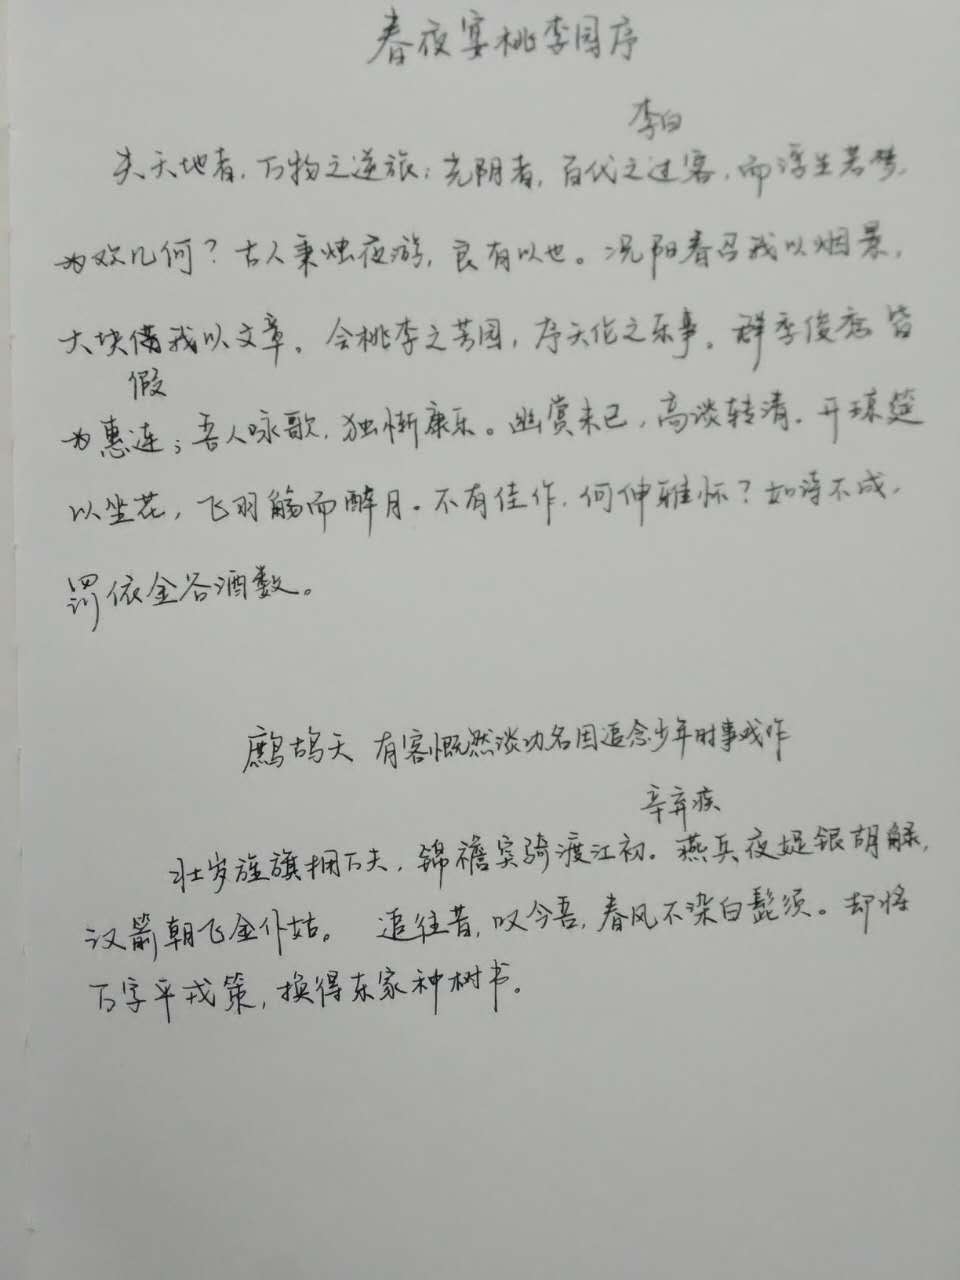 春夜宴桃李园序
李白
夫天地者，万物之逆旅；光阴者，百代之过客，而浮生若梦，
为欢几何？古人秉烛夜游，良有以也。况阳春召我以烟景，
大块借我以文章。会桃李之芳园，序天伦之乐事。群季俊秀皆
假
为惠连；吾人咏歌，独惭康乐。幽赏未已，高谈转清。开琼筵
以坐花，飞羽觞而醉月。不有佳作，何伸雅怀？如诗不成，
罚依金谷酒数。
鹧鸪天 有客慨然谈功名因追念少年时事戏作
辛弃疾
壮岁旌旗拥万夫，锦襜突骑渡江初。燕兵夜娖银胡觮，
汉箭朝飞金仆姑。 追往昔，叹今吾，春风不染白髭须。却将
万字平戎策，换得东家种树书。